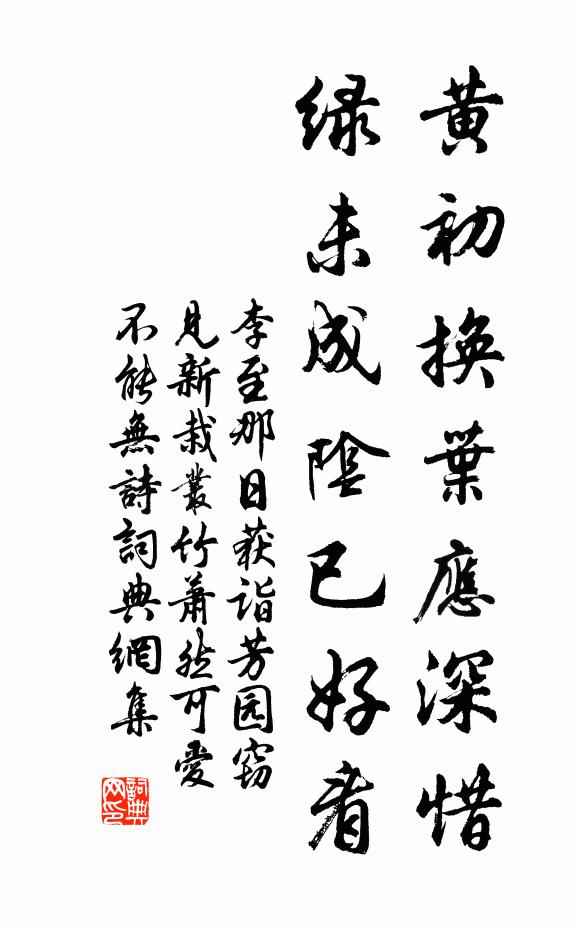 黄初換葉應深惜
緑未成陰已好看
李至那日获詣芳园窃
見新栽叢竹蕭然可愛
不能無詩詞典網集
詞典
网印